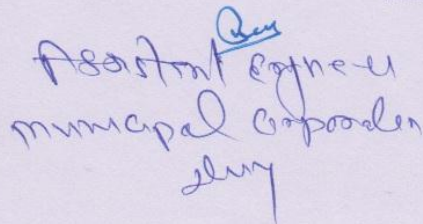 Assistant Engineer
Municipal Corporation